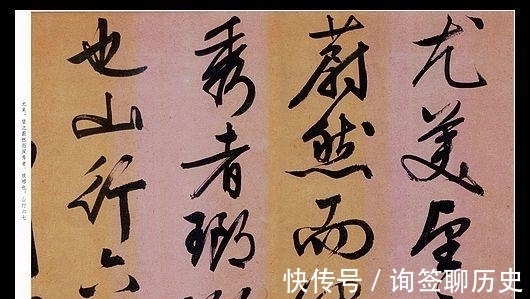 尤美望
蔚然而深
秀者瑯
也山行六
尤美，望之蔚然而深秀者，琅琊也。山行六七
快传号 / 询签聊历史